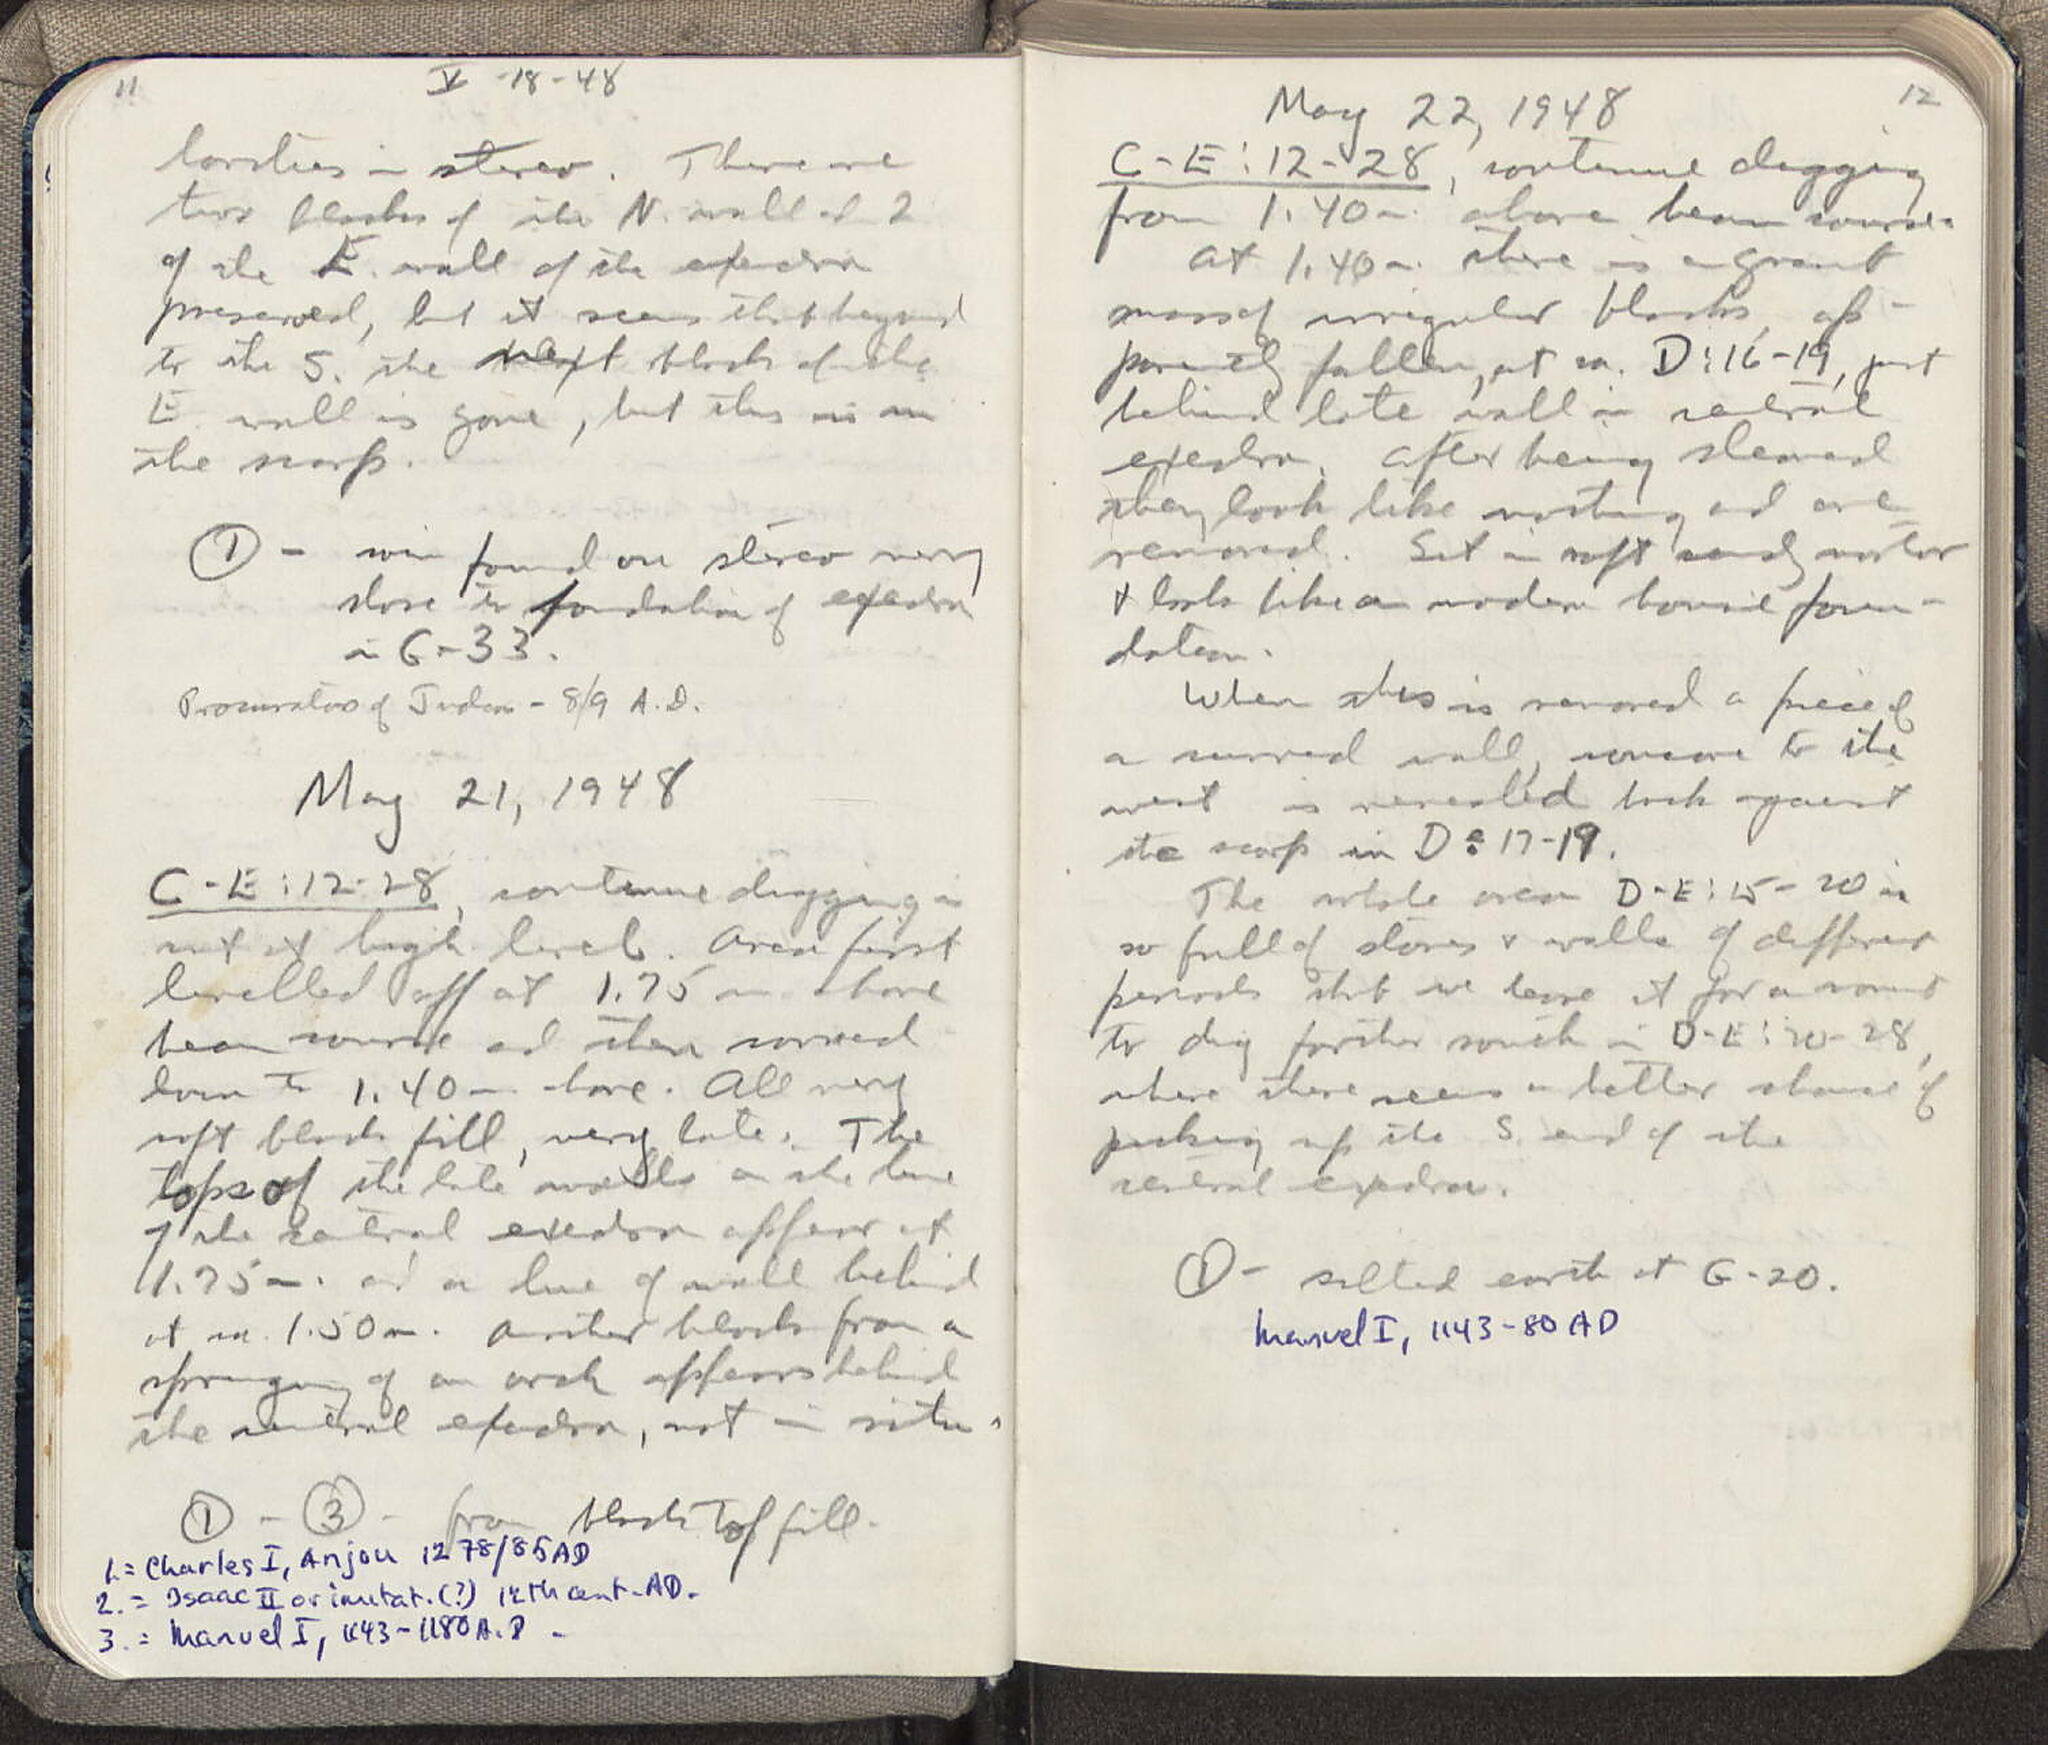 11
V -18-48
in stereo. There are
two blocks of the N. wall and 2
of the E. wall of the exedra
preserved, but it seems that beyond
to the S. the next block of the
E. wall is gone, but this is in
the scarp.
① - coin found on stereo very
close to foundation of exedra
in G-33.
Procurator of Judea - 8/9 A.D.
May 21, 1948
C-E:12-28, continue digging in
at high level. Area first
levelled off at 1.75 m above
beam course and then carried
down to 1.40 m. above. All very
soft black fill, very late. The
tops of the late walls on the line
of the central exedra appear at
1.75 m. and a line of wall behind
at ca. 1.50 m. Another block from a
springing of an arch appears behind
the central exedra, not in situ.
① - ③ - from black top fill.
1. = Charles I, Anjou 1278/85 AD
2. = Isaac II or imitat. (?) 12th cent. AD.
3. = Manuel I, 1143-1180 A.D -
12
May 22, 1948
C-E:12-28, continue digging
from 1.40 m. above beam course.
At 1.40 m. there is a great
mass of irregular blocks, ap-
parently fallen, at ca. D:16-19, just
behind late wall in central
exedra. After being cleaned
they look like nothing and are
removed. Set in soft sandy mortar
& looks like a modern house foun-
dation.
When this is removed a piece of
a curved wall, concave to the
west is revealed back against
the scarp in D:17-19.
The whole area D-E:15-20 is
so full of stones & walls of different
periods that we leave it for a moment
to dig farther south in D-E:20-28,
where there seems a better chance of
picking up the S. end of the
central exedra.
① - salted earth at G-20.
Manuel I, 1143-80 AD